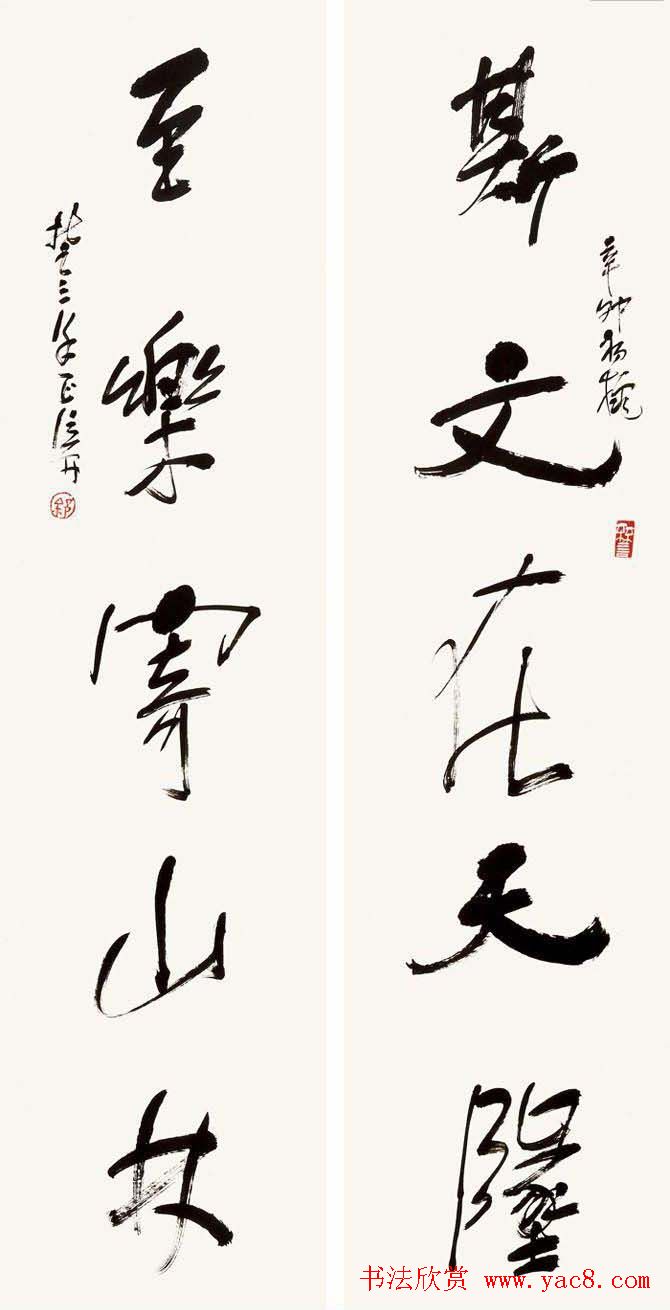 斯文在天墬
辛卯
至樂寄山林
书法欣赏 www.yac8.com